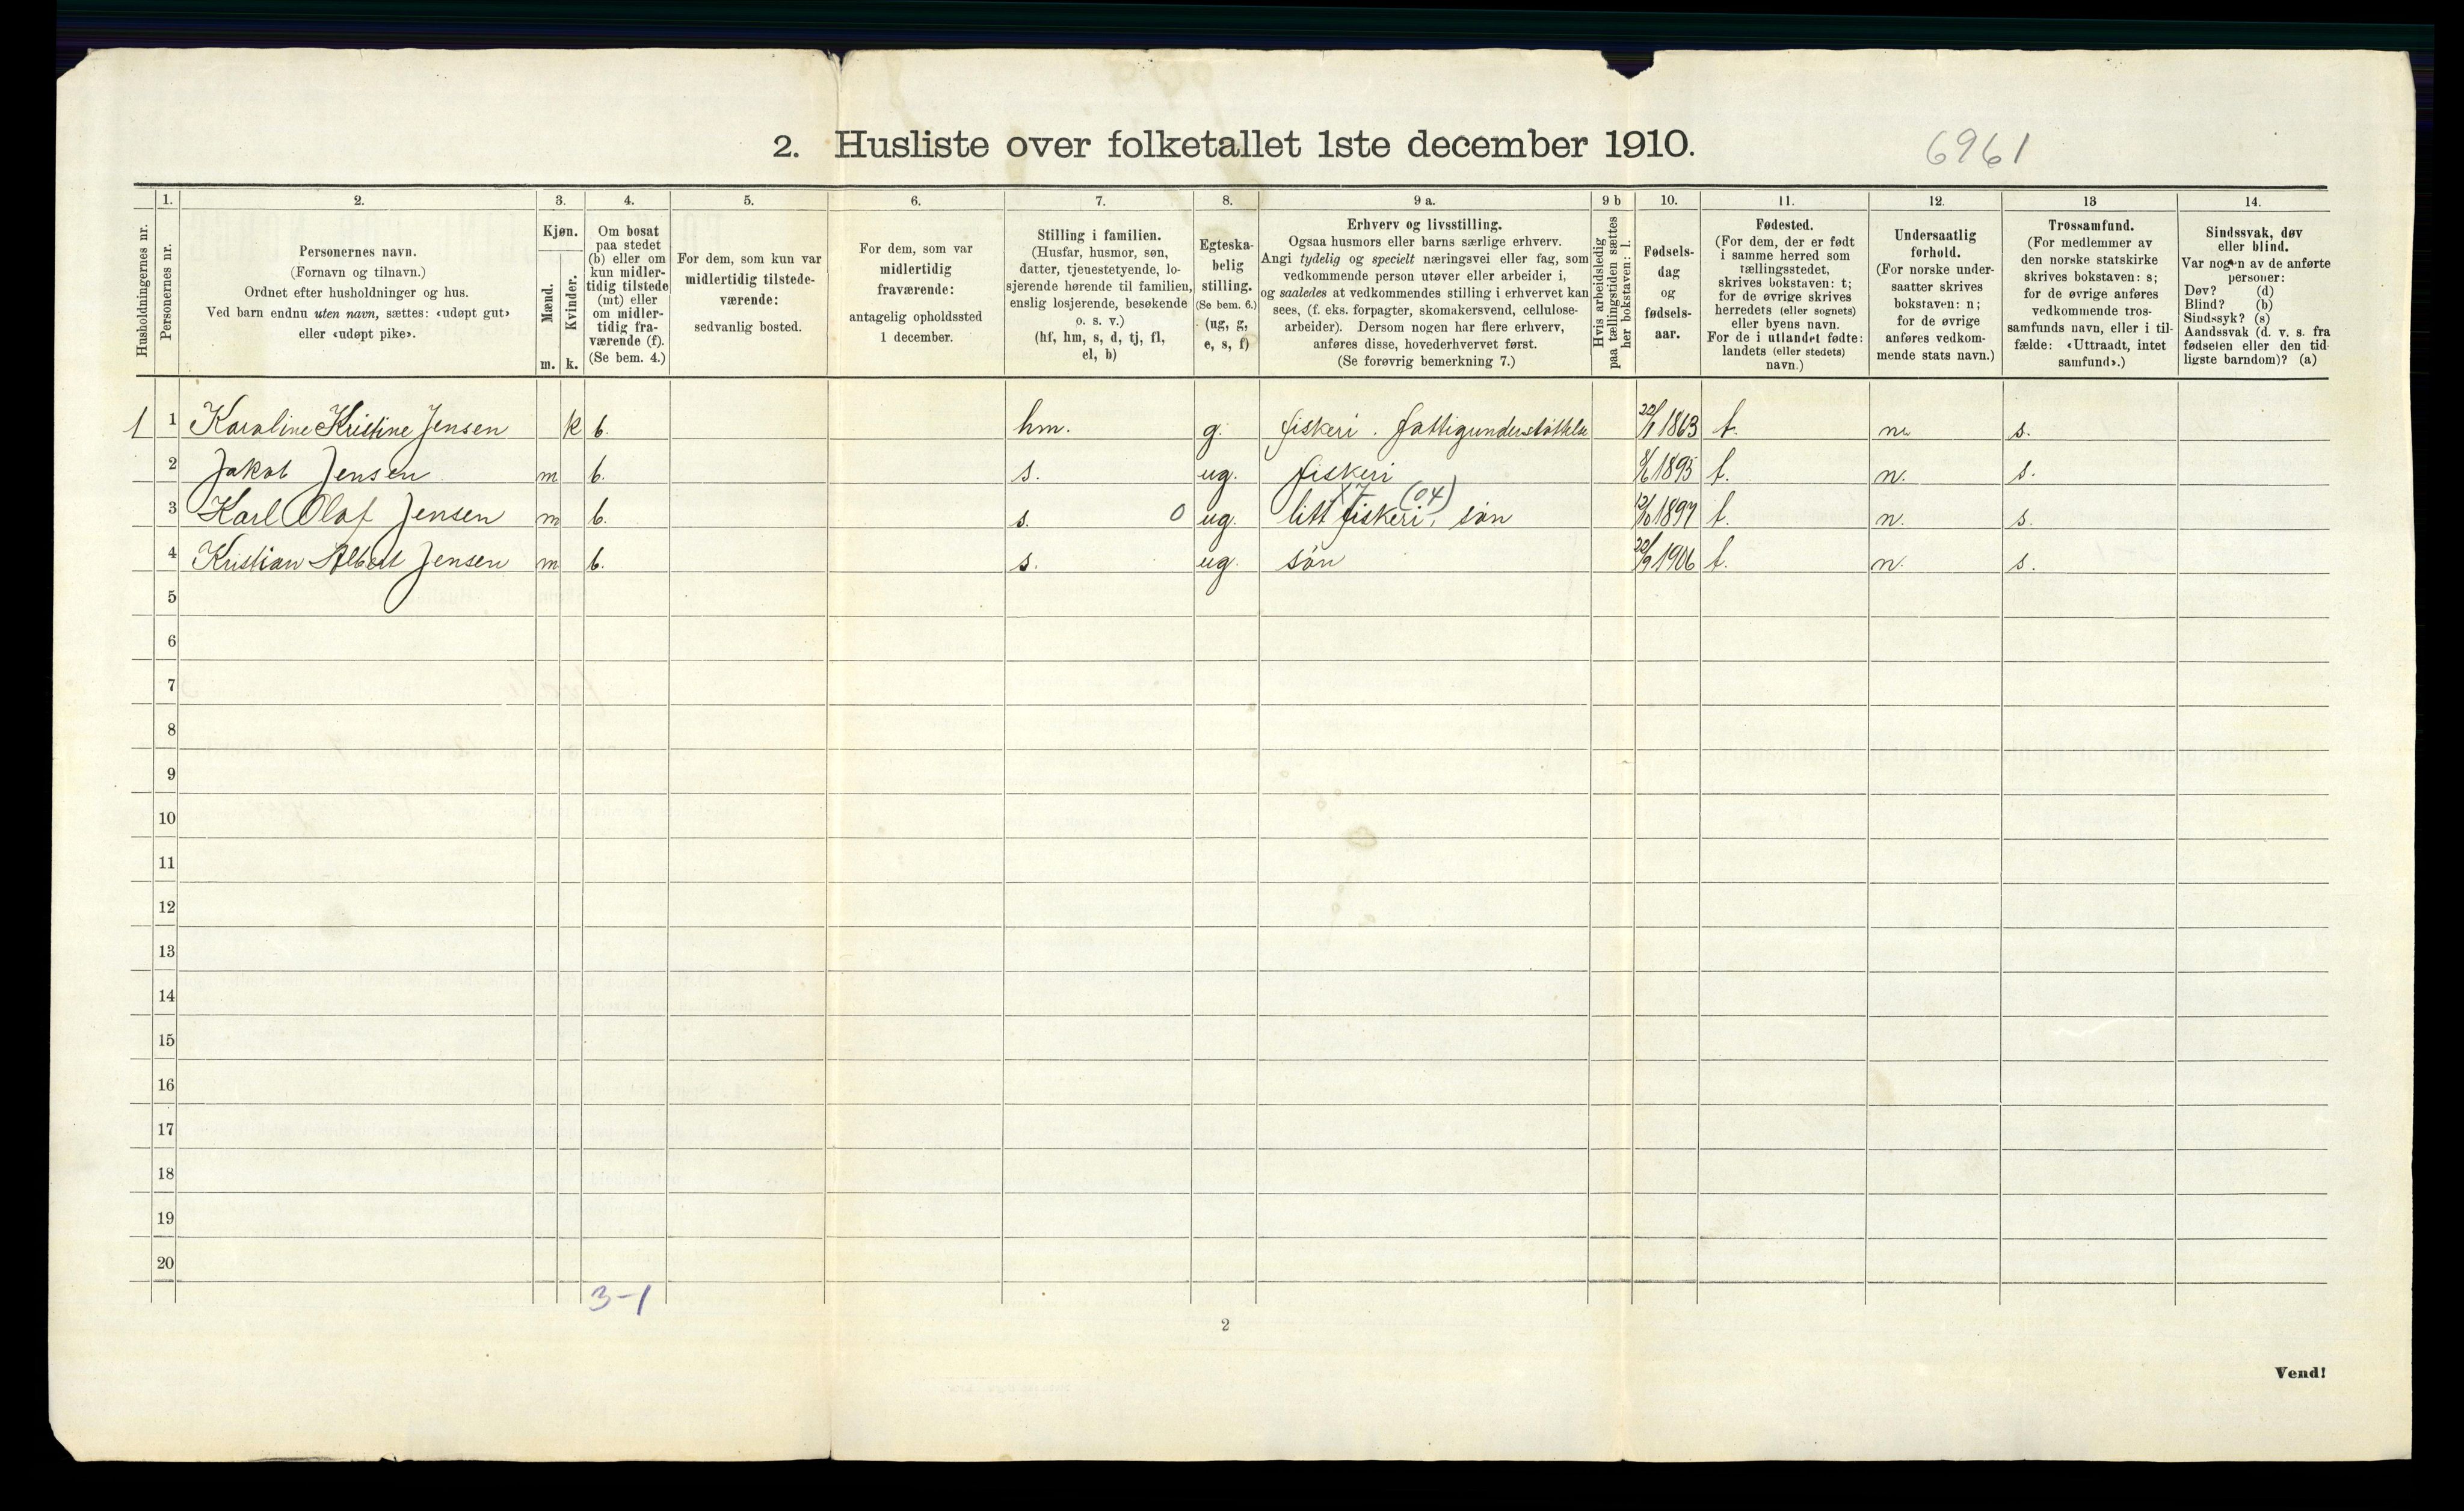 2. Husliste over folketallet 1ste december 1910.
6961
Husholdningernes nr.
1.
Personernes nr.
2.
Personernes navn.
(Fornavn og tilnavn.)
Ordnet efter husholdninger og hus.
Ved barn endnu uten navn, sættes: «udøpt gut»
eller «udøpt pike».
3.
Kjøn.
Mænd.
m.
Kvinder.
k.
4.
Om bosat
paa stedet
(b) eller om
kun midler-
tidig tilstede
(mt) eller
om midler-
tidig fra-
værende (f).
(Se bem. 4.)
5.
For dem, som kun var
midlertidig tilstede-
værende:
sedvanlig bosted.
6.
For dem, som var
midlertidig
fraværende:
antagelig opholdssted
1 december.
7.
Stilling i familien.
(Husfar, husmor, søn,
datter, tjenestetyende, lo-
sjerende hørende til familien,
enslig losjerende, besøkende
o. s. v.)
(hf, hm, s, d, tj, fl,
el, b)
8.
Egteska-
belig
stilling.
(Se bem. 6.)
(ug, g,
e, s, f)
9 a.
Erhverv og livsstilling.
Ogsaa husmors eller barns særlige erhverv.
Angi tydelig og specielt næringsvei eller fag, som
vedkommende person utøver eller arbeider i,
og saaledes at vedkommendes stilling i erhvervet kan
sees, (f. eks. forpagter, skomakersvend, cellulose-
arbeider). Dersom nogen har flere erhverv,
anføres disse, hovederhvervet først.
(Se forøvrig bemerkning 7.)
9 b
Hvis arbeidsledig
paa tællingstiden sættes
her bokstaven: l.
10.
Fødsels-
dag
og
fødsels-
aar.
11.
Fødested.
(For dem, der er født
i samme herred som
tællingsstedet,
skrives bokstaven: t;
for de øvrige skrives
herredets (eller sognets)
eller byens navn.
For de i utlandet fødte:
landets (eller stedets)
navn.)
12.
Undersaatlig
forhold.
(For norske under-
saatter skrives
bokstaven: n;
for de øvrige
anføres vedkom-
mende stats navn.)
13
Trossamfund.
(For medlemmer av
den norske statskirke
skrives bokstaven: s;
for de øvrige anføres
vedkommende tros-
samfunds navn, eller i til-
fælde: «Uttraadt, intet
samfund».)
14.
Sindssvak, døv
eller blind.
Var nogen av de anførte
personer:
Døv? (d)
Blind? (b)
Sindssyk? (s)
Aandssvak (d. v. s. fra
fødselen eller den tid-
ligste barndom)? (a)
1 1 Karoline Kristine Jensen k b. hm. g. fiskeri. fattigunderstøttelse 22/1 1863 t. n. s.
2 Jakob Jensen m b. s. ug. fiskeri 8/6 1895 t. n. s.
X7 (04)
3 Karl Olaf Jensen m b. s. 0 ug. litt fiskeri, søn 12/10 1897 t. n. s.
4 Kristian Albert Jensen m b. s. ug. søn 22/9 1906 t. n. s.
5
6
7
8
9
10
11
12
13
14
15
16
17
18
19
20
3-1
2
Vend!